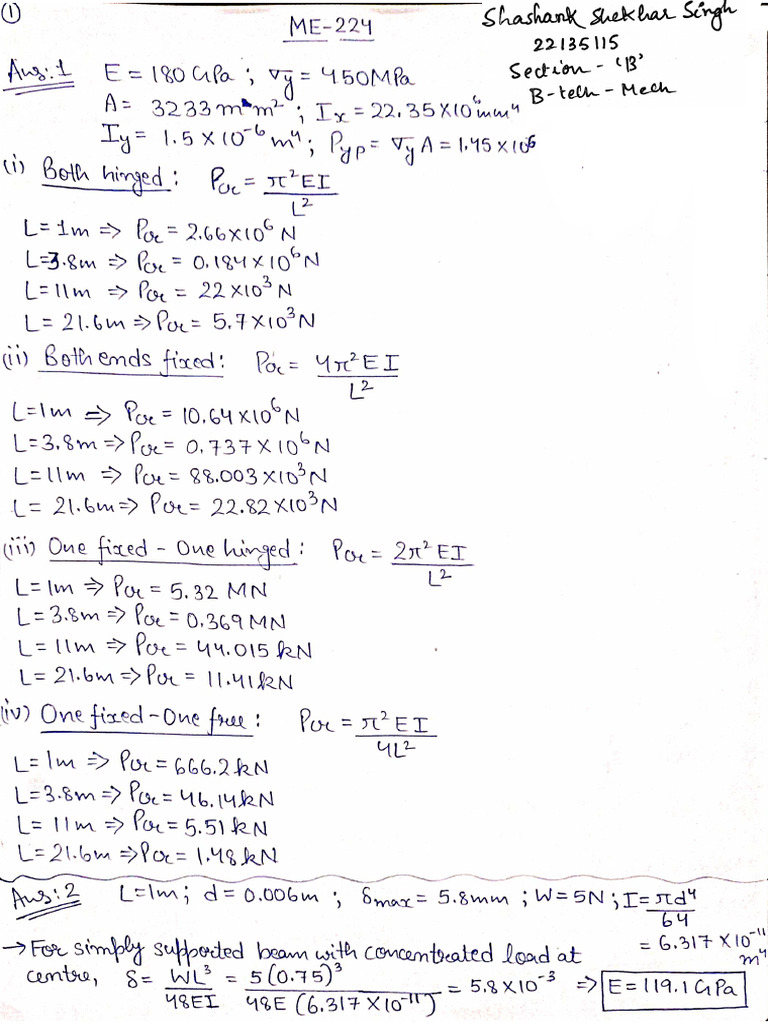 ①
ME-224
Shashank Shekhar Singh
22135115
Section - 'B'
B-tech - Mech
Ans:1 E = 180 GPa ; σy = 450MPa
A = 3233 mm² ; Ix = 22.35X10⁶ mm⁴
Iy = 1.5 X 10⁻⁶ m⁴ ; Pyp = σy A = 1.45 x 10⁶
(i) Both hinged : Pcr = π²EI/L²
L = 1m => Pcr = 2.66X10⁶ N
L=3.8m => Pcr = 0.184X10⁶N
L=11m => Pcr = 22 X10³N
L = 21.6m => Pcr = 5.7X10³N
(ii) Both ends fixed : Pcr = 4π²EI/L²
L=1m => Pcr = 10.64X10⁶N
L=3.8m => Pcr = 0.737 X 10⁶N
L=11m => Pcr = 88.003X10³N
L = 21.6m => Pcr = 22.82X10³N
(iii) One fixed - One hinged : Pcr = 2π²EI/L²
L=1m => Pcr = 5.32 MN
L=3.8m => Pcr = 0.369MN
L=11m => Pcr = 44.015 kN
L = 21.6m => Pcr = 11.41kN
(iv) One fixed - One free : Pcr = π²EI/4L²
L=1m => Pcr = 666.2kN
L=3.8m => Pcr = 46.14kN
L= 11m => Pcr = 5.51 kN
L=21.6m => Pcr = 1.48kN
Ans:2 L=1m; d = 0.006m ; δmax = 5.8mm ; W=5N ; I = πd⁴/64
= 6.317 X10⁻¹¹ m⁴
→ For simply supported beam with concentrated load at
centre, δ = WL³/48EI = 5(0.75)³/48E(6.317X10⁻¹¹) = 5.8X10⁻³ => E = 119.1 GPa